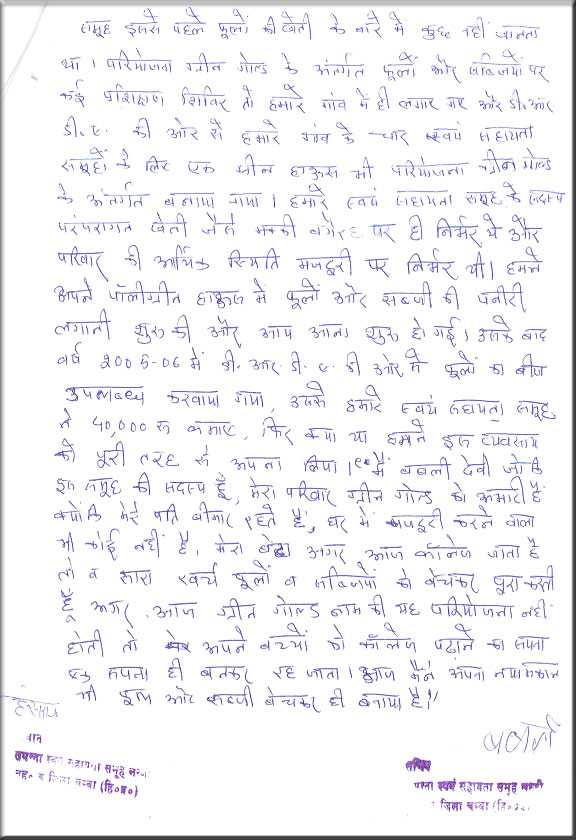 समूह इससे पहले फूलों की खेती के बारे में कुछ नहीं जानता
था। परियोजना ग्रीन गोल्ड के अंर्तगत फूलों और सब्जियों पर
कई प्रशिक्षण शिविर तो हमारे गांव में ही लगाए गए और डी. आर
डी. ए. की ओर से हमारे गांव के चार स्वयं सहायता
समूहों के लिए एक ग्रीन हाऊस भी परियोजना ग्रीन गोल्ड
के अंतर्गत बनाया गया। हमारे स्वयं सहायता समूह के सदस्य
परंपरागत खेती जैसे मक्की वगैरह पर ही निर्भर थे और
परिवार की आर्थिक स्थिति मजदूरी पर निर्भर थी। हमने
अपने पॉलीग्रीन हाऊस में फूलों और सब्जी की पनीरी
लगानी शुरू की और आय आना शुरू हो गई। उसके बाद
वर्ष 2005-06 में डी. आर. डी. ए. की ओर से फूलों का बीज
उपलब्ध करवाया गया, उससे हमारे स्वयं सहायता समूह
ने 40,000 रू कमाए, फिर क्या था हमने इस व्यवसाय
को पूरी तरह से अपना लिया। "मैं बबली देवी जोकि
इस समूह की सदस्य हूँ, मेरा परिवार ग्रीन गोल्ड को आभारी है
क्योंकि मेरे पति बीमार रहते हैं, घर में मजदूरी करने वाला
भी कोई नहीं है, मेरा बेटा अगर आज कॉलेज जाता है
तो व सारा खर्च फूलों व सब्जियों को बेचकर पूरा करती
हूँ अगर आज ग्रीन गोल्ड नाम की यह परियोजना नहीं
होती तो अपने बच्चों को कॉलेज पढ़ाने का सपना
एक सपना ही बनकर रह जाता। आज मैंने अपना नया मकान
भी फूल और सब्जी बेचकर ही बनाया है।"
स्वयं सहायता समूह
जिला चम्बा (हि०प्र०)
सचिव
स्वयं सहायता समूह
जिला चम्बा (हि०प्र०)